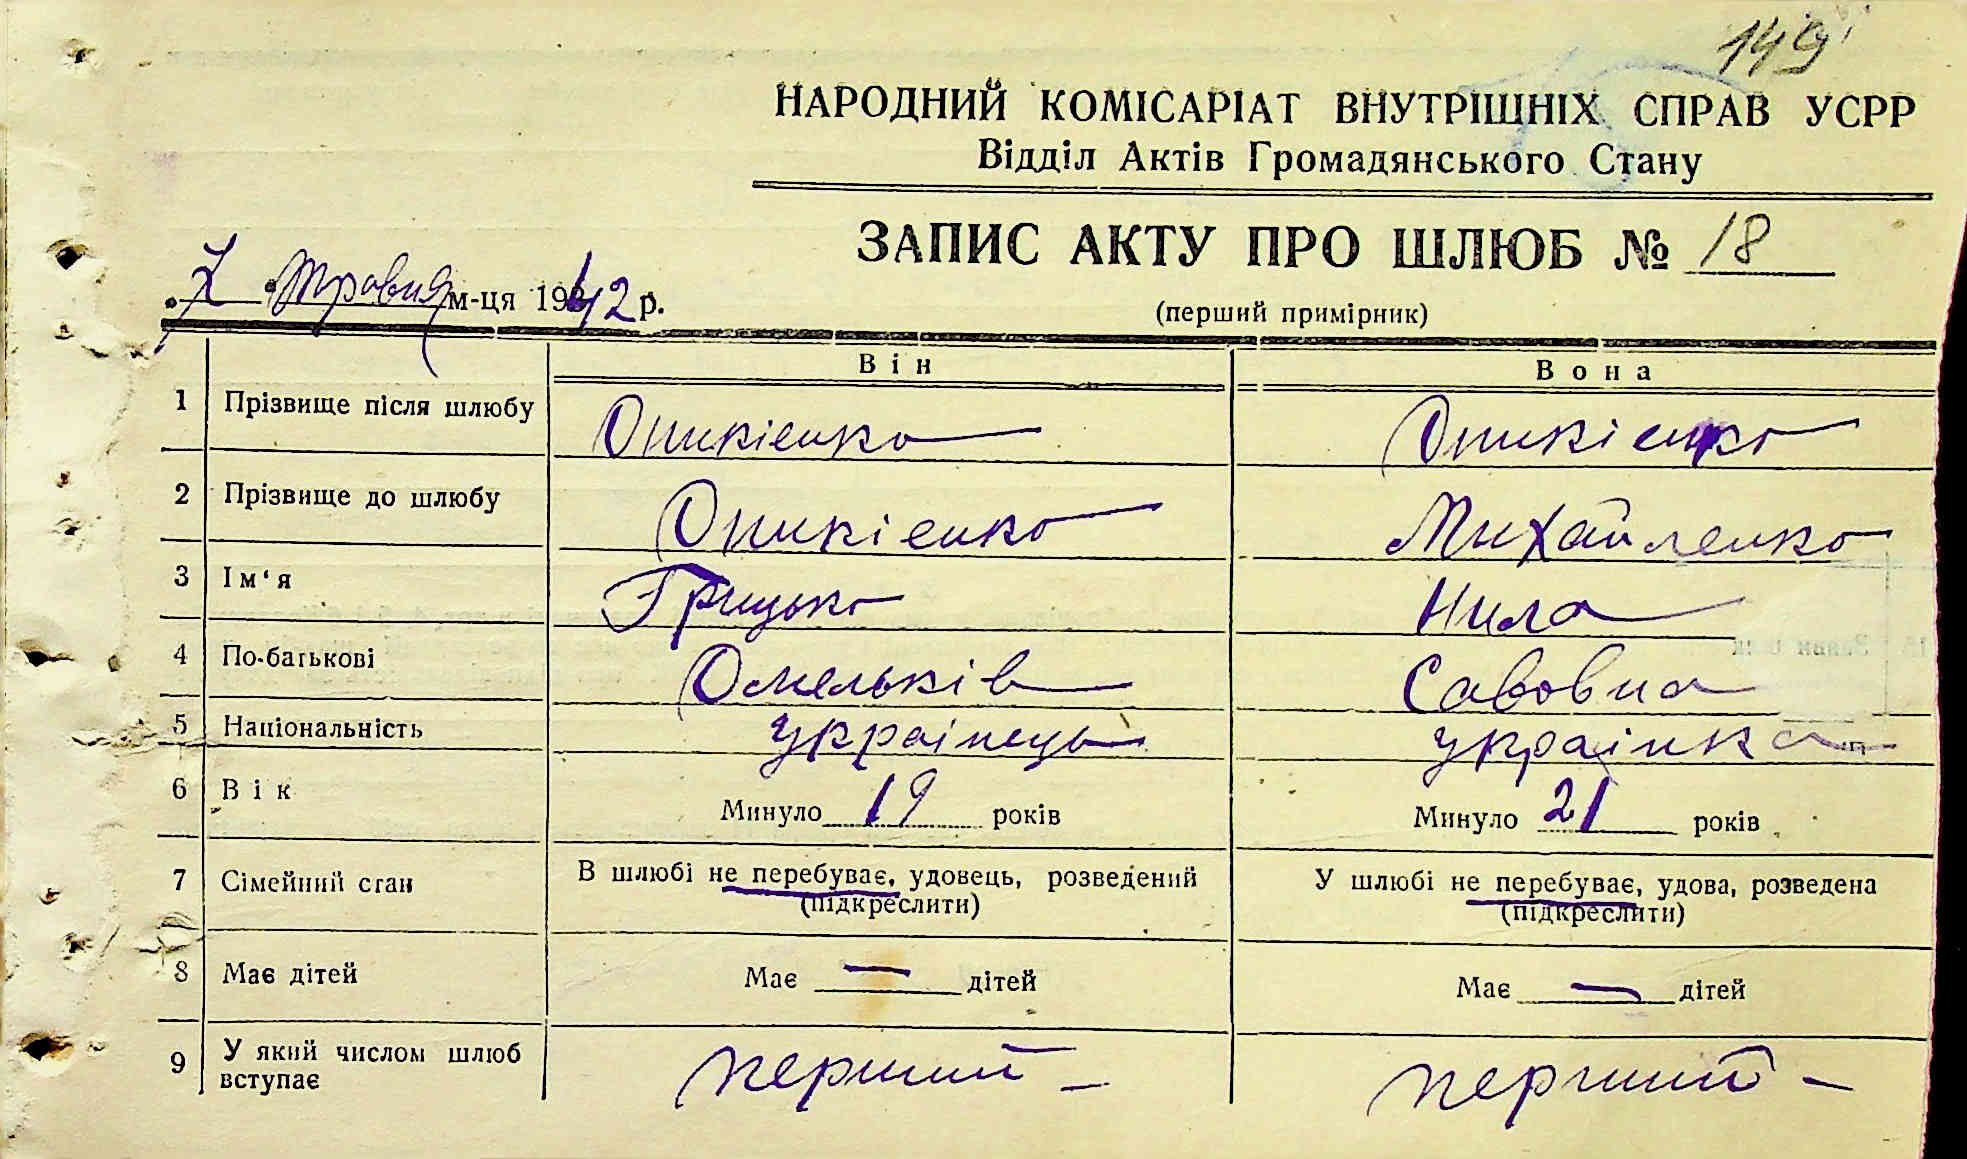 149
НАРОДНИЙ КОМІСАРІАТ ВНУТРІШНІХ СПРАВ УСРР
Відділ Актів Громадянського Стану
ЗАПИС АКТУ ПРО ШЛЮБ № 18
(перший примірник)
„7 " травня м-ця 1942 р.
Він Вона
1 Прізвище після шлюбу Оникієнко Оникієнко
2 Прізвище до шлюбу Оникієнко Михайленко
3 Ім‘я Грицько Нила
4 По-батькові Омельків Савовна
5 Національність українець українка
6 Вік Минуло 19 років Минуло 21 років
7 Сімейний стан В шлюбі не перебуває, удовець, розведений У шлюбі не перебуває, удова, розведена
(підкреслити) (підкреслити)
8 Має дітей Має — дітей Має — дітей
9 У який числом шлюб вступає перший — перший —